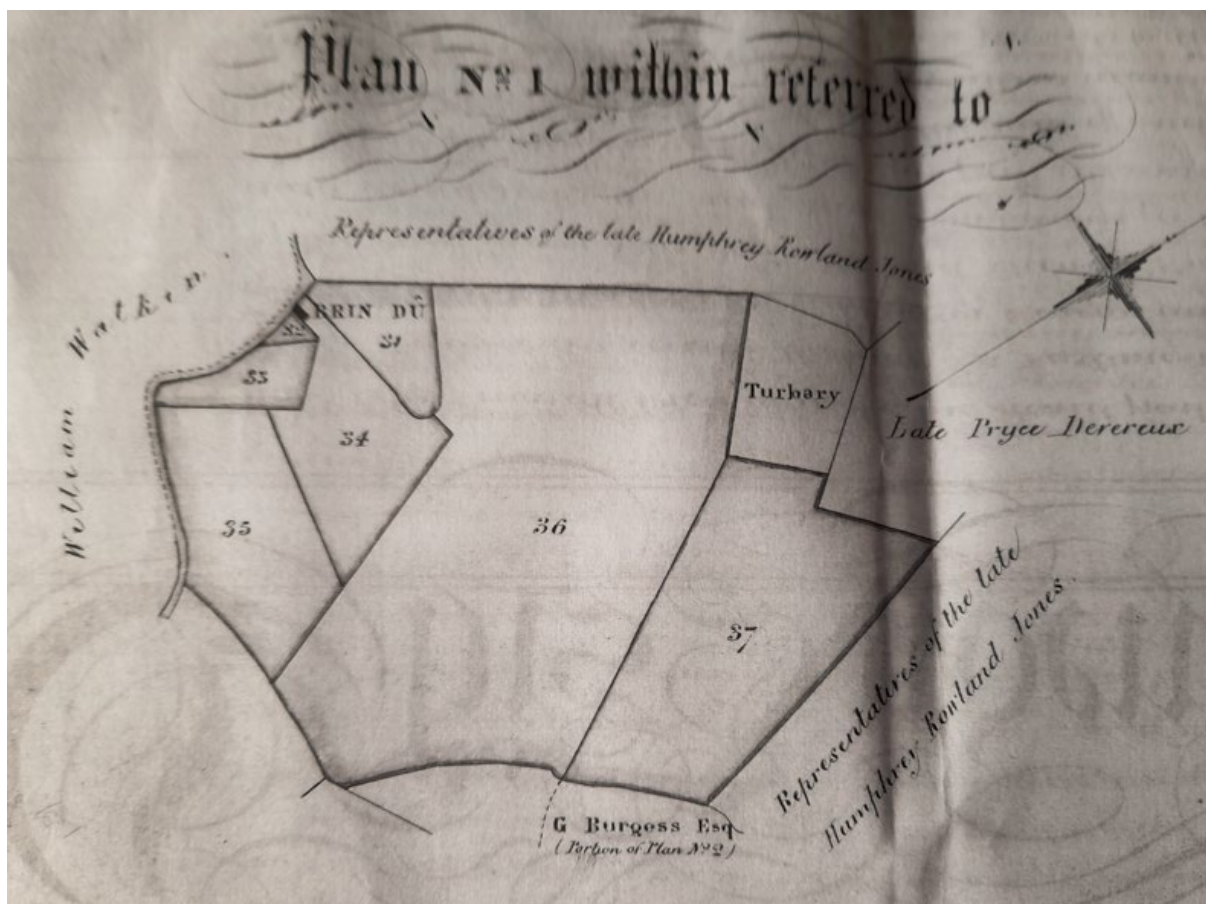 Plan No. 1 within referred to
Representatives of the late Humphrey Rowland Jones
William Watkin
BRIN DÛ
31
32
33
34
35
36
37
Turbary
Late Pryce Devereux
Representatives of the late
Humphrey Rowland Jones.
G Burgess Esq
(Portion of Plan No. 2)